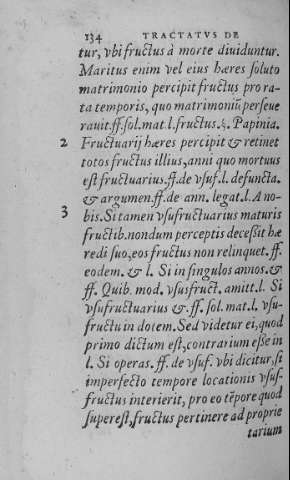 134 TRACTATVS DE
tur, vbi fructus à morte diuiduntur.
Maritus enim vel eius hæres soluto
matrimonio percipit fructus pro ra-
ta temporis, quo matrimoniũ perseue
rauit. ff. sol. mat. l. fructus. §. Papinia.
2 Fructuarij hæres percipit & retinet
totos fructus illius, anni quo mortuus
est fructuarius. ff. de vsuf. l. defuncta.
& argumen. ff. de ann. legat. l. A no-
3 bis. Si tamen vsufructuarius maturis
fructib. nondum perceptis decessit hæ
redi suo, eos fructus non relinquet. ff.
eodem. & l. Si in singulos annos. &
ff. Quib. mod. vsusfruct. amitt. l. Si
vsufructuarius & ff. sol. mat. l. vsu-
fructu in dotem. Sed videtur ei, quod
primo dictum est, contrarium esse in
l. Si operas. ff. de vsuf. vbi dicitur, si
imperfecto tempore locationis vsus-
fructus interierit, pro eo tẽpore quod
superest, fructus pertinere ad proprie
tarium